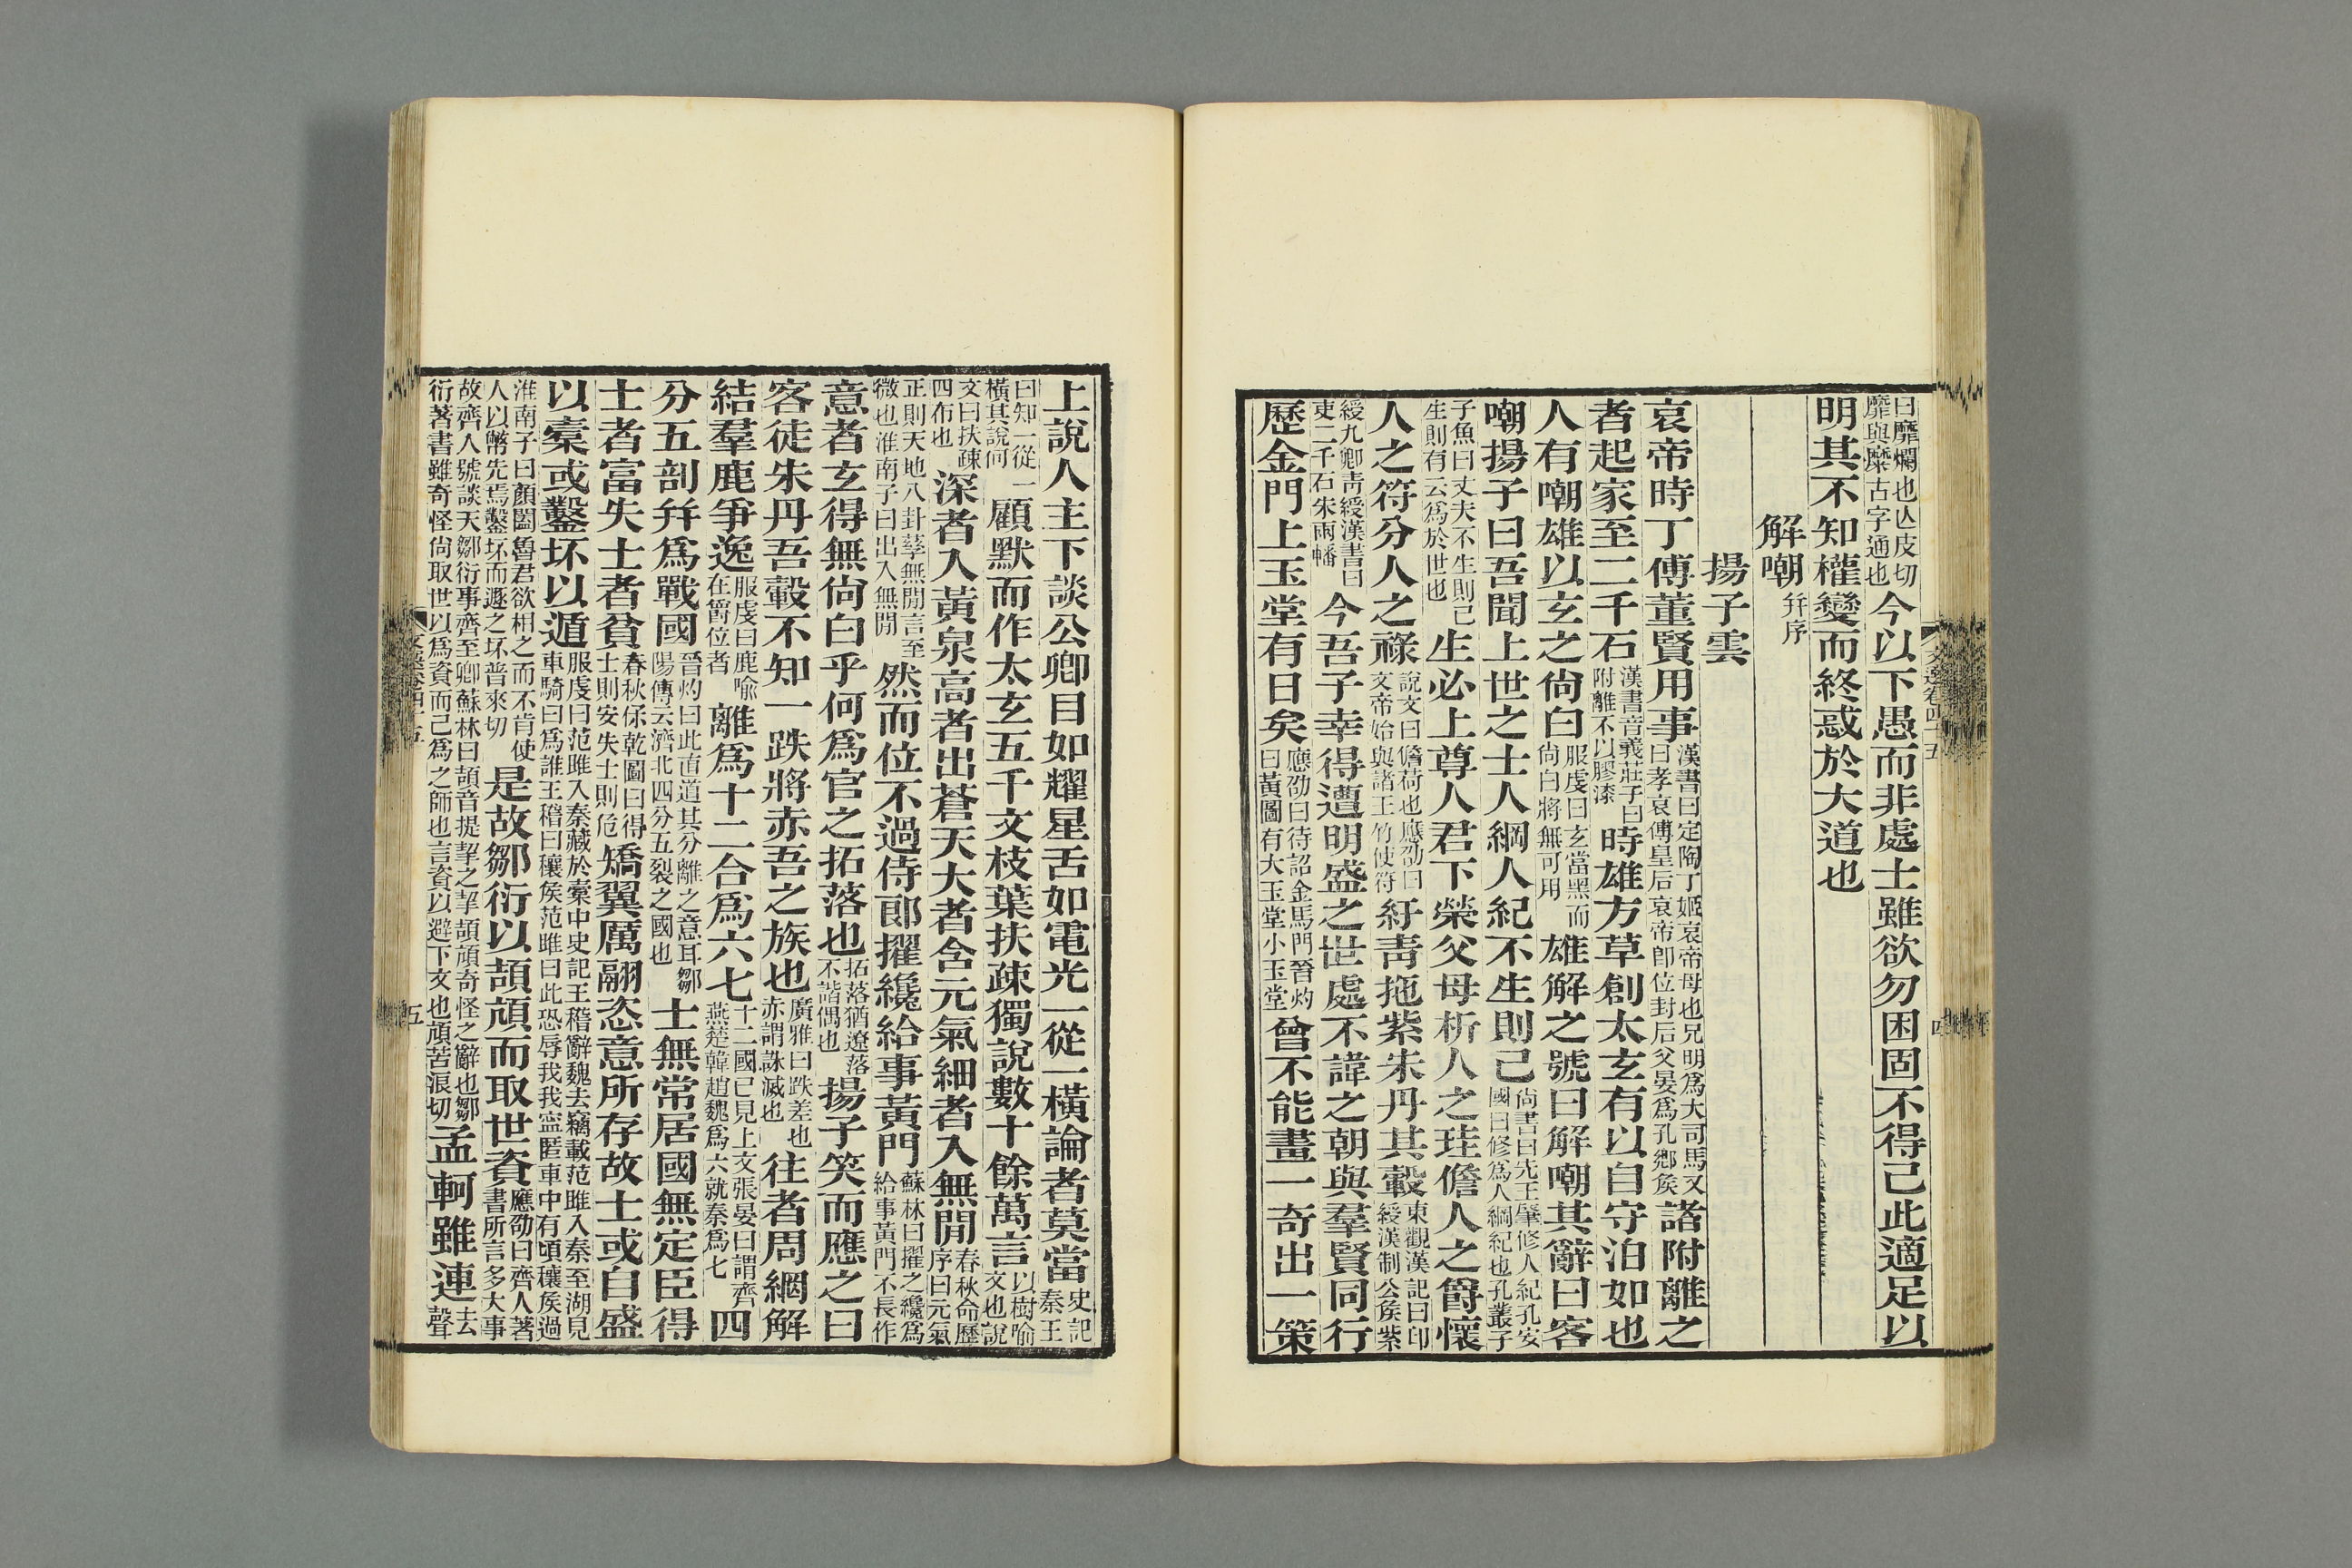 曰靡爛也亾皮切
靡與糜古字通也
今以下愚而非處士雖欲勿困固不得己此適足以
明其不知權變而終惑於大道也
解嘲
幷序
揚子雲
哀帝時丁傅董賢用事
漢書曰定陶丁姬哀帝母也兄明爲大司馬又
曰孝哀傅皇后哀帝卽位封后父晏爲孔鄉侯
諸附離之
者起家至二千石
漢書音義莊子曰
附離不以膠漆
時雄方草創太玄有以自守泊如也
人有嘲雄以玄之尙白
服虔曰玄當黑而
尙白將無可用
雄解之號曰解嘲其辭曰客
嘲揚子曰吾聞上世之士人綱人紀不生則己
尙書曰先王肇修人紀孔安
國曰修爲人綱紀也孔叢子
子魚曰丈夫不生則己
生則有云爲於世也
生必上尊人君下榮父母析人之珪儋人之爵懷
人之符分人之祿
說文曰儋荷也應劭曰
文帝始與諸王竹使符
紆靑拖紫朱丹其轂
東觀漢記曰印
綬漢制公侯紫
綬九卿靑綬漢書曰
吏二千石朱兩轓
今吾子幸得遭明盛之世處不諱之朝與羣賢同行
歷金門上玉堂有日矣
應劭曰待詔金馬門晉灼
曰黃圖有大玉堂小玉堂
曾不能畫一奇出一策
文選卷四十五
四
上說人主下談公卿目如耀星舌如電光一從一橫論者莫當
史記
秦王
曰知一從一
橫其說何
顧默而作太玄五千文枝葉扶疎獨說數十餘萬言
以樹喻
文也說
文曰扶疎
四布也
深者入黃泉高者出蒼天大者含元氣細者入無閒
春秋命歷
序曰元氣
正則天地八卦孳無閒言至
微也淮南子曰出入無閒
然而位不過侍郎擢纔給事黃門
蘇林曰擢之纔爲
給事黃門不長作
意者玄得無尙白乎何爲官之拓落也
拓落猶遼落
不諧偶也
揚子笑而應之曰
客徒朱丹吾轂不知一跌將赤吾之族也
廣雅曰跌差也
赤謂誅滅也
往者周網解
結羣鹿爭逸
服虔曰鹿喻
在爵位者
離爲十二合爲六七
十二國已見上文張晏曰謂齊
燕楚韓趙魏爲六就秦爲七
四
分五剖幷爲戰國
晉灼曰此直道其分離之意耳鄒
陽傳云濟北四分五裂之國也
士無常居國無定臣得
士者富失士者貧
春秋保乾圖曰得
士則安失士則危
矯翼厲翮恣意所存故士或自盛
以橐或鑿坏以遁
服虔曰范雎入秦藏於橐中史記王稽辭魏去竊載范雎入秦至湖見
車騎曰爲誰王稽曰穰侯范雎曰此恐辱我我寧匿車中有頃穰侯過
淮南子曰顏闔魯君欲相之而不肯使
人以幣先焉鑿坏而遯之坏普來切
是故鄒衍以頡頏而取世資
應劭曰齊人著
書所言多大事
故齊人號談天鄒衍事齊至卿蘇林曰頡音提挈之挈頡頏奇怪之辭也鄒
衍著書雖奇怪尙取世以爲資而己爲之師也言資以避下文也頏苦浪切
孟軻雖連
去
聲
五